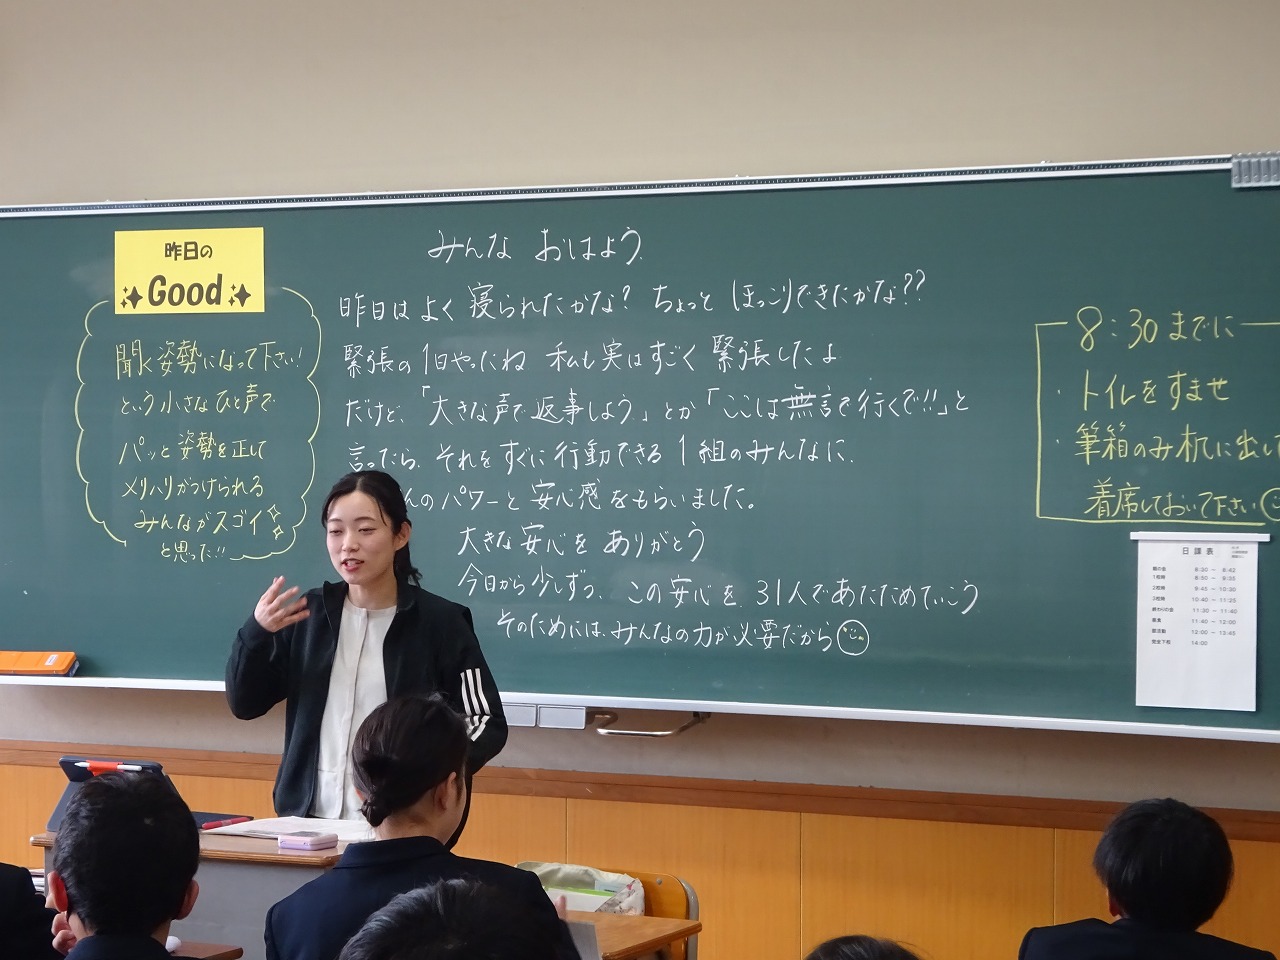 昨日の
Good
聞く姿勢になって下さい!
という小さなひと声で
パッと姿勢を正して
メリハリがつけられる
みんながスゴイ
と思った!!
みんな おはよう
昨日は よく 寝られたかな? ちょっと ほっこりできたかな??
緊張の1日やったね 私も実はすごく緊張したよ
だけど、「大きな声で返事しよう」とか「ここは無言で行くで!!」と
言ったら、それをすぐに行動できる1組のみんなに、
んのパワーと安心感をもらいました。
大きな安心をありがとう
今日から少しずつ、この安心を、31人であたためていこう
そのためには、みんなの力が必要だから
8:30までに
・トイレをすませ
・筆箱のみ机に出して
着席しておいて下さい
日課表
朝の会 8:30 - 8:42
1校時 8:50 - 9:35
2校時 9:45 - 10:30
3校時 10:40 - 11:25
終わりの会 11:30 - 11:40
昼食 11:40 - 12:00
部活動 12:00 - 13:45
完全下校 14:00